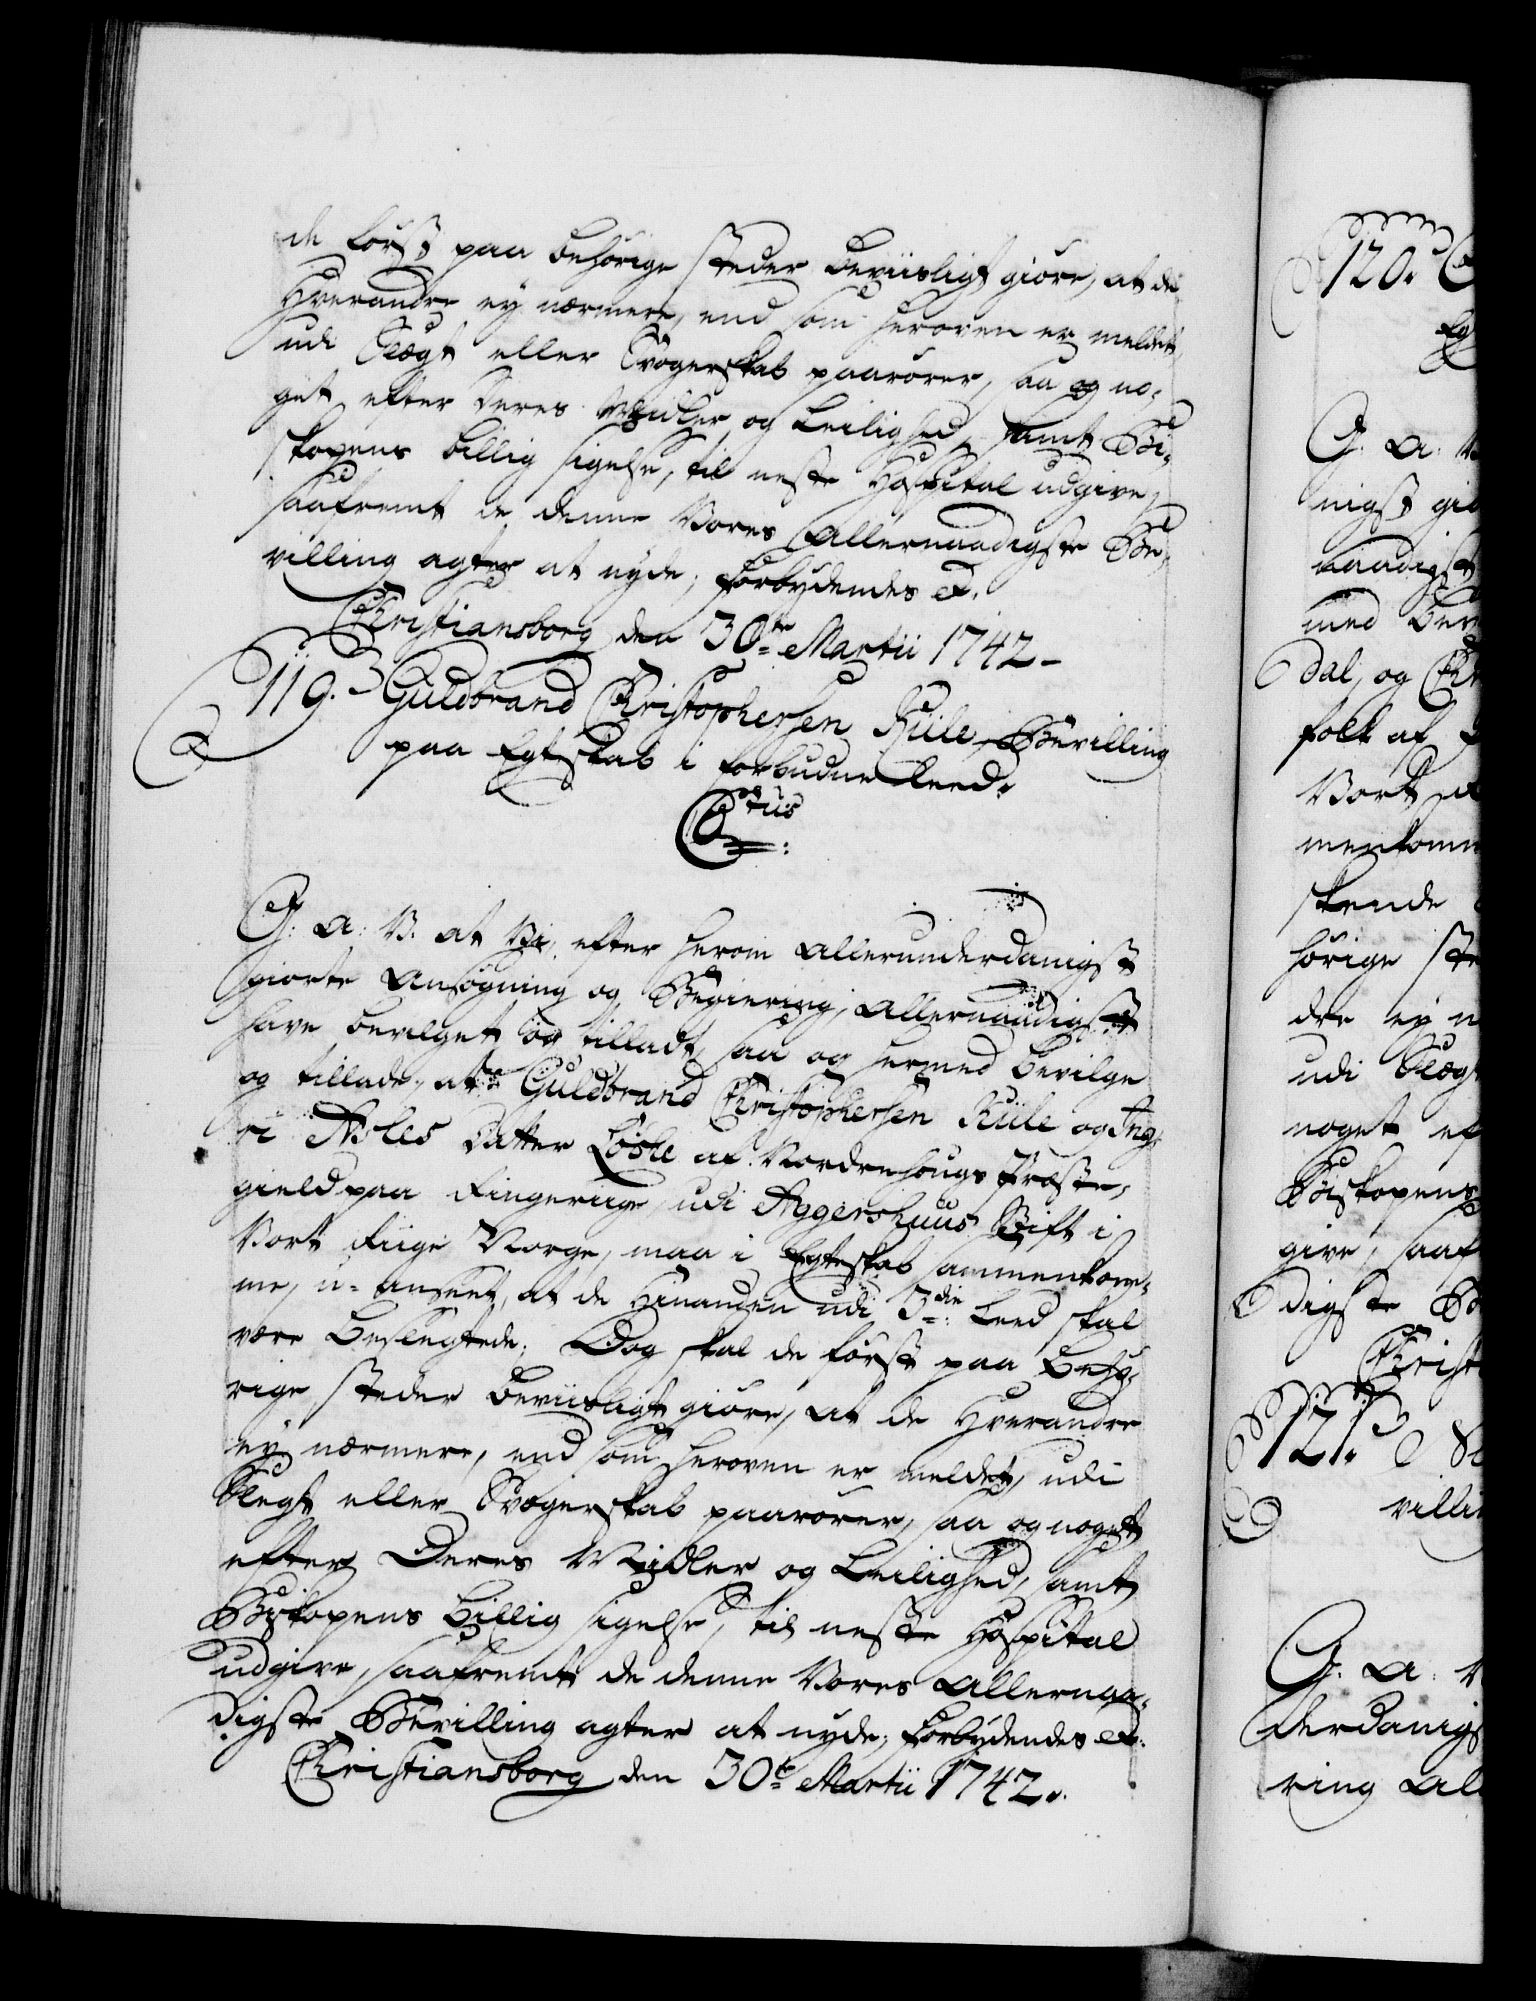 de først paa behørige steder beviisligt giøre, at de
Hverandre ey nærmere, end som heroven er meldet,
udi Slægt eller Svogerskab paarører, saa og no-
get efter Deres Midler og Leilighed, samt Bi-
skopens billig sigelse, til neste Hospital udgive,
saafremt de denne Vores Allernaadigste Be-
villing agter at nyde; Forbydendes &.
Christiansborg den 30te Martii 1742.
119. Guldbrand Christophersen Kiile, Bevilling
paa Egteskab i forbudne Leed.
C 6tus
G. A. V. at Vi, efter herom allerunderdanigst
giorte Ansøgning og Begiering, Allernaadigst
have bevilget og tilladt, saa og hermed bevilge
og tillade, at Guldbrand Christophersen Kiile og Ing-
ri Asles Datter Løsle af Nordrehougs Præste-
gield paa Ringerige udi Aggershuus Stift i
Vort Riige Norge, maa i Egteskab sammenkom-
me, u-anseet, at de Hinanden udi 3die Leed skal
være beslegtede; Dog skal de først paa behø-
rige steder beviisligt giøre, at de Hverandre
ey nærmere, end som heroven er meldet, udi
Slegt eller Svogerskab paarører, saa og noget
efter Deres Midler og Leilighed, samt
Biskopens billig sigelse, til neste Hospital
udgive, saafremt de denne Vores Allernaa-
digste Bevilling agter at nyde; Forbydendes &.
Christiansborg den 30te Martii 1742.
120.
G. A. V
nigst gio
naadigst
med Bev
dal, og Chr
folk af
Vort R
menkomm
skende
hørige ste
dre ey n
udi Slægt
noget ef
Biskopens
give, saaf
digste B
Christ
121.
villi
G. A. V
derdanigs
ring All